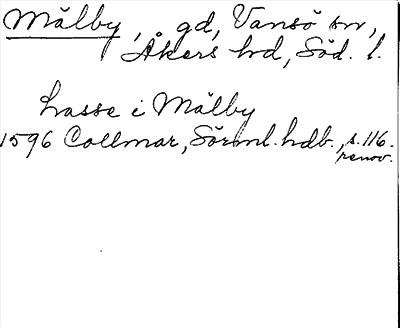 Målby, gd, Vansö sn,
Åkers hrd, Söd. l.
Lasse i Målby
1596 Collmar, Sörml. hdb., s. 116.
renov.